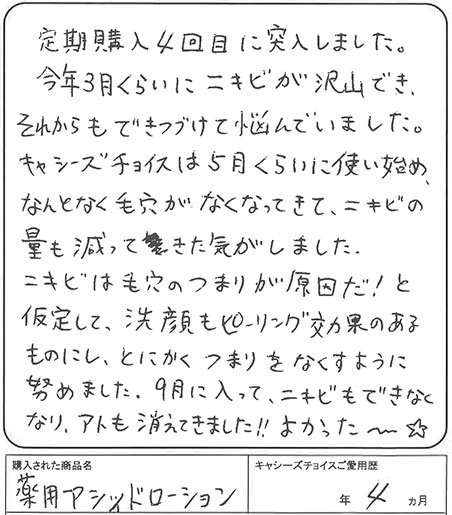 定期購入4回目に突入しました。
今年3月くらいにニキビが沢山でき、
それからもできつづけて悩んでいました。
キャシーズチョイスは5月くらいに使い始め、
なんとなく毛穴がなくなってきて、ニキビの
量も減ってきた気がしました.
ニキビは毛穴のつまりが原因だ!と
仮定して、洗顔もピーリング効果のある
ものにし、とにかくつまりをなくすように
努めました. 9月に入って、ニキビもできなく
なり、アトも消えてきました!!よかった〜☆
購入された商品名
薬用アシッドローション
キャシーズチョイスご愛用歴
年 4 ヵ月